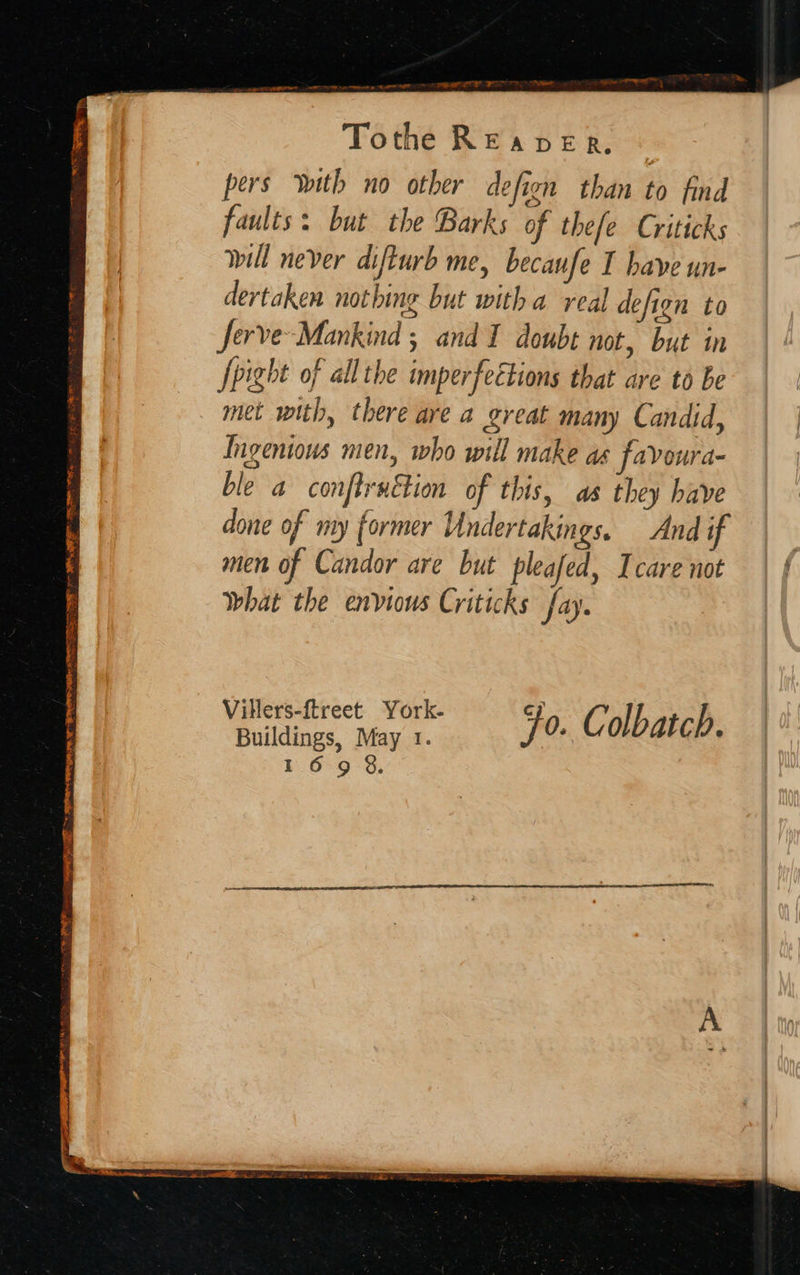 To the READER.
pers with no other deſign than to find
faults: but the Barks of theſe Criticks
will never diſturb me, becauſe I have un-
dertaken nothing but with a real deſign to
ſerve Mankind; and I doubt not, but in
ſpight of all the imperfections that are to be
met with, there are a great many Candid,
Ingenious men, who will make as favoura-
ble a conſtruction of this, as they have
done of my former Undertakings. And if
men of Candor are but pleaſed, I care not
what the envious Criticks ſay.
Villers-ſtreet York-
Buildings, May 1.
1698.
Jo. Colbatch.
A